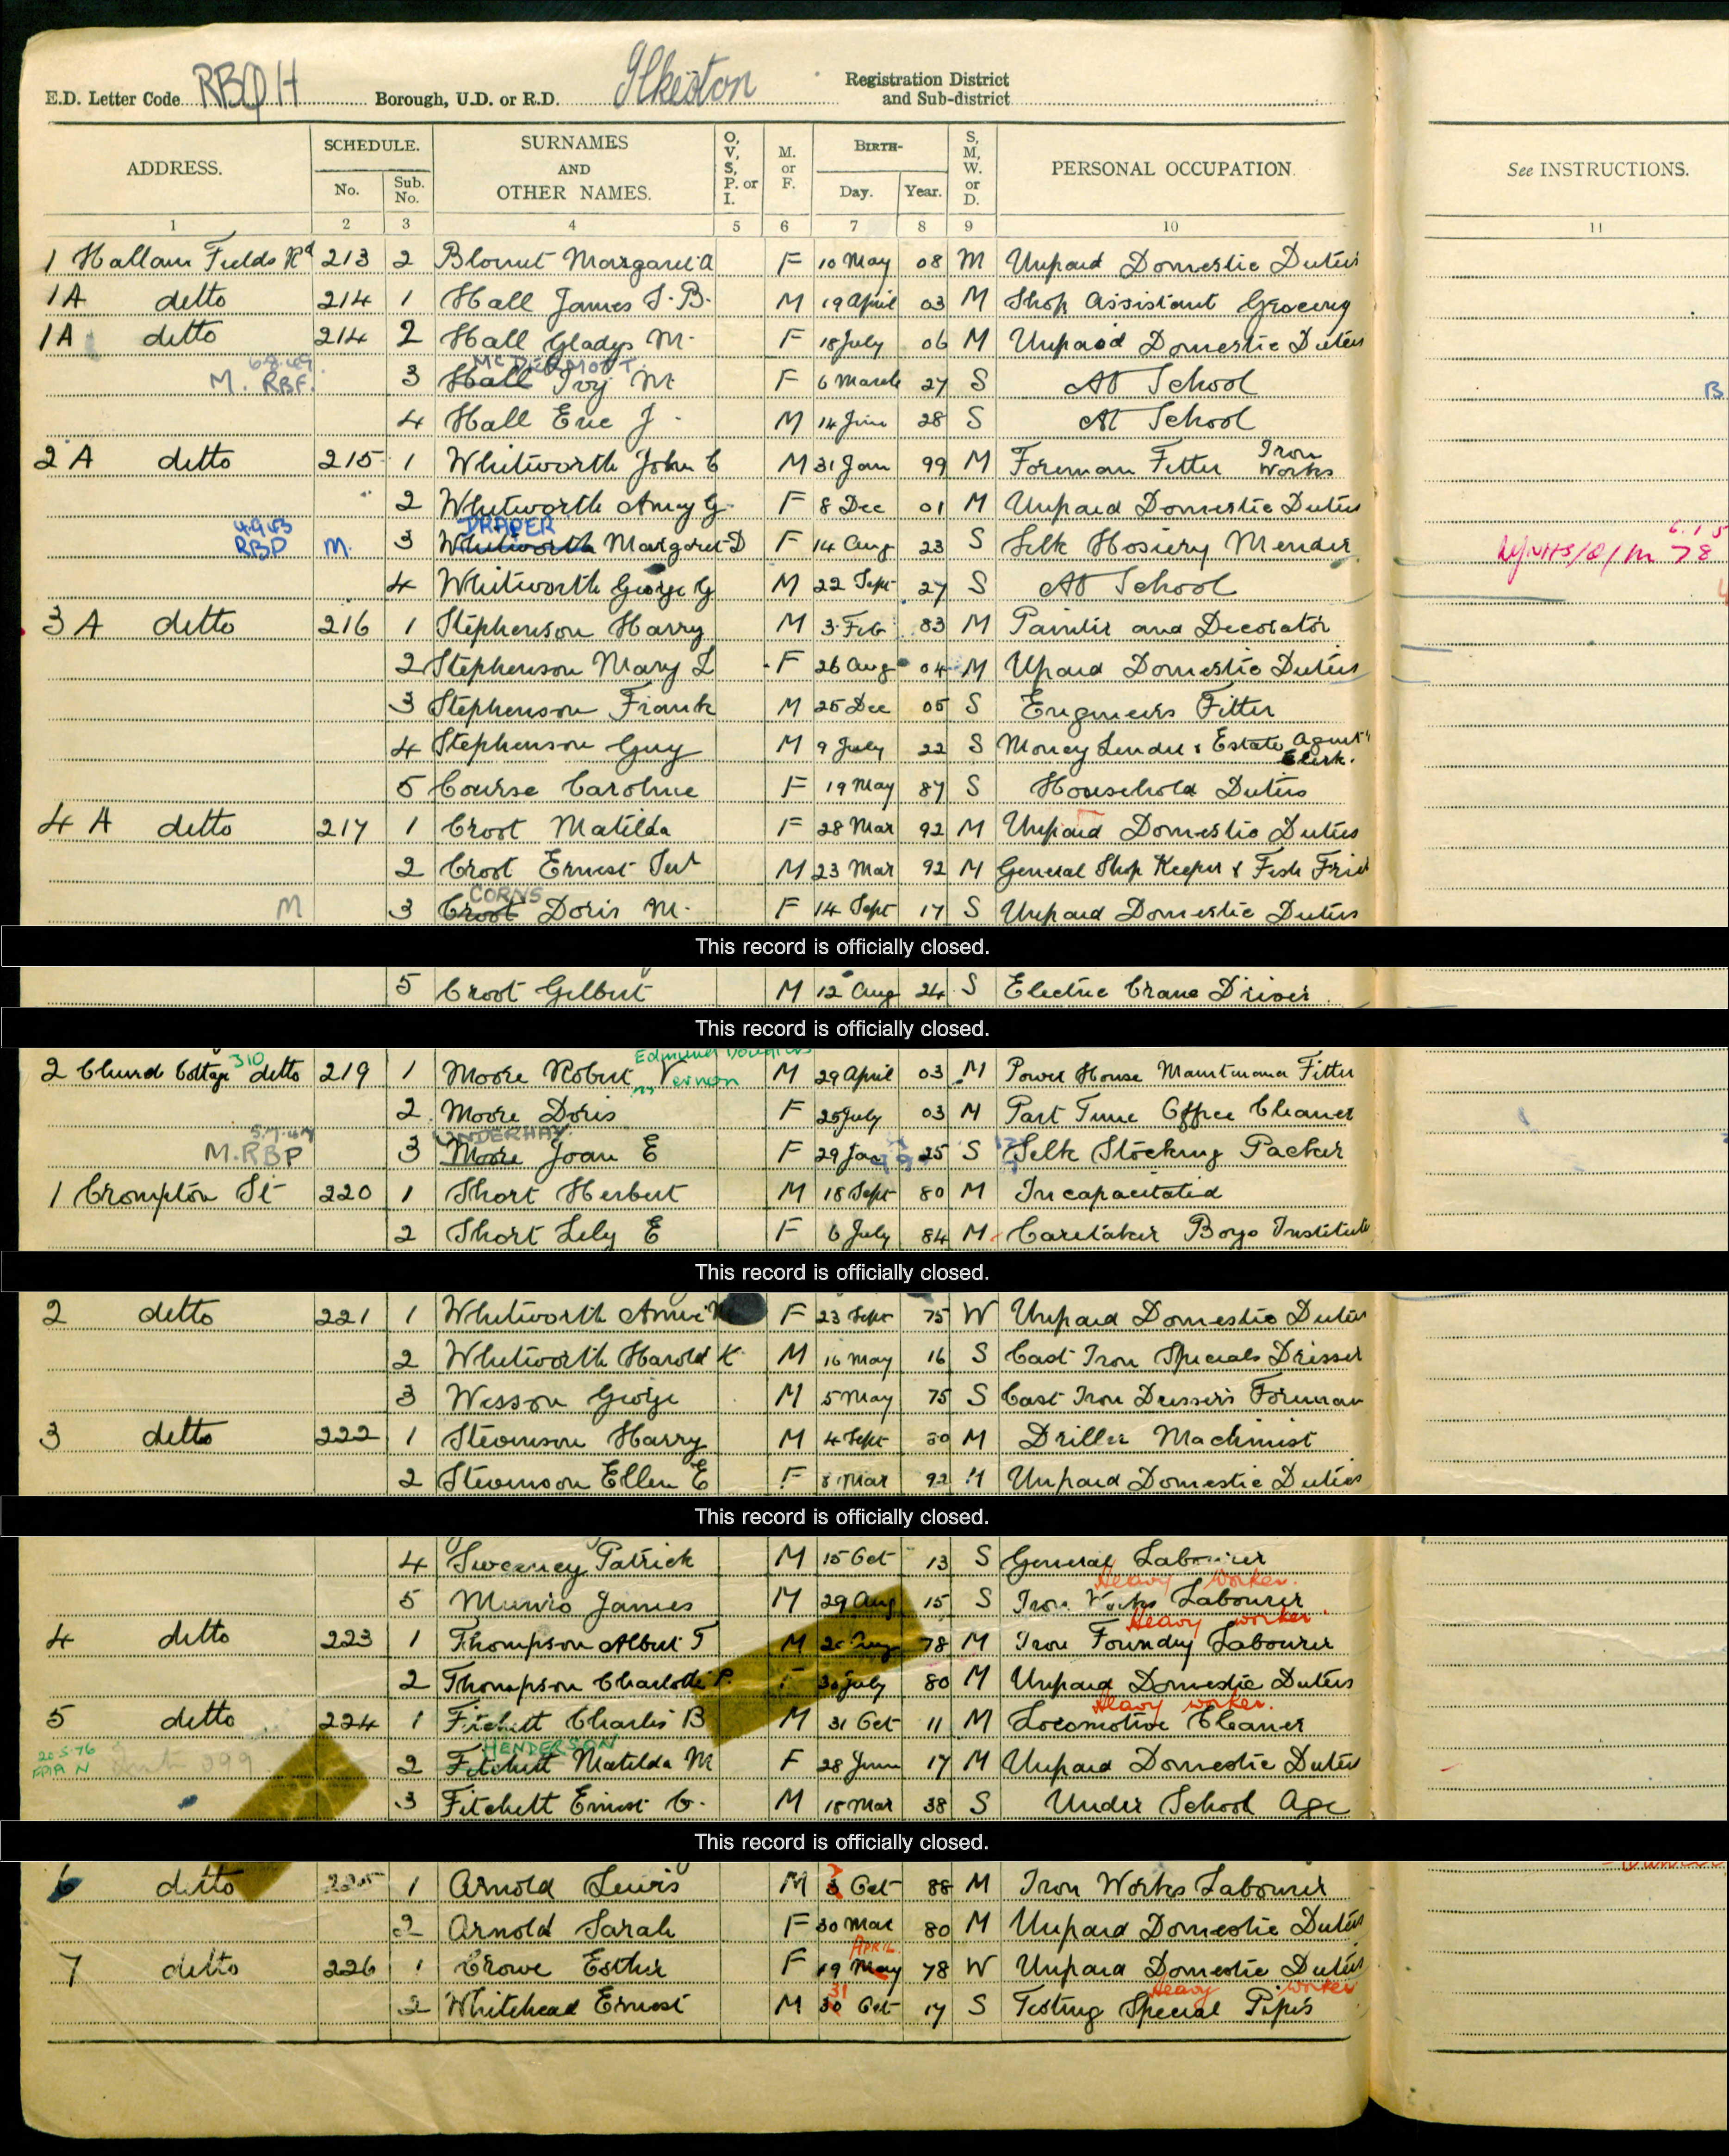 E.D. Letter Code RBQH Borough, U.D. or R.D. Ilkeston Registration District and Sub-district
ADDRESS. SCHEDULE. No. Sub. No. SURNAMES AND OTHER NAMES. O, V, S, P. or I. M. or F. BIRTH- Day. Year. S, M, W. or D. PERSONAL OCCUPATION. See INSTRUCTIONS.
1 2 3 4 5 6 7 8 9 10 11
1 Hallam Fields Rd 213 2 Blount Margaret A F 10 May 08 M Unpaid Domestic Duties
1A ditto 214 1 Hall James S. B. M 19 April 03 M Shop Assistant Grocery
1A ditto 214 2 Hall Gladys M. F 18 July 06 M Unpaid Domestic Duties
McDERMOTT
M. RBF. 3 Hall Ivy M F 6 March 27 S At School B
4 Hall Eric J M 14 June 28 S At School
2A ditto 215 1 Whitworth John C M 31 Jan 99 M Foreman Fitter Iron Works
2 Whitworth Amy G. F 8 Dec 01 M Unpaid Domestic Duties
4.9.43 DRAPER
RBP M. 3 Whitworth Margaret D F 14 Aug 23 S Silk Hosiery Mender
4 Whitworth George G M 22 Sept 27 S At School
3A ditto 216 1 Stephenson Harry M 3 Feb 83 M Painter and Decorator
2 Stephenson Mary L F 26 Aug 04 M Upaid Domestic Duties
3 Stephenson Frank M 25 Dec 05 S Engineers Fitter
4 Stephenson Guy M 9 July 22 S Money Lender & Estate Agent's Clerk.
5 Course Caroline F 19 May 87 S Household Duties
4A ditto 217 1 Croot Matilda F 28 Mar 92 M Unpaid Domestic Duties
2 Croot Ernest M 23 Mar 92 M General Shop Keeper & Fish Frier
CORNS
M 3 Croot Doris M. F 14 Sept 17 S Unpaid Domestic Duties
This record is officially closed.
5 Croot Gilbert M 12 Aug 24 S Electric Crane Driver
This record is officially closed.
Edmund Douglas
2 Church Cottage 310 ditto 219 1 Moore Robert Vernon M 29 April 03 M Power House Maintenance Fitter
2 Moore Doris F 25 July 03 M Part Time Office Cleaner
UNDERHAY
M. RBP 3 Moore Joan E F 29 Jan 25 S Silk Stocking Packer
1 Crompton St 220 1 Short Herbert M 18 Sept 80 M Incapacitated
2 Short Lily E F 6 July 84 M Caretaker Boys Institute
This record is officially closed.
2 ditto 221 1 Whitworth Annie F 23 Sept 75 W Unpaid Domestic Duties
2 Whitworth Harold K M 16 May 16 S Cast Iron Specials Dresser
3 Wesson George M 5 May 75 S Cast Iron Dressers Foreman
3 ditto 222 1 Stevenson Harry M 4 Sept 80 M Driller Machinist
2 Stevenson Ellen E F 8 Mar 92 M Unpaid Domestic Duties
This record is officially closed.
4 Sweeney Patrick M 15 Oct 13 S General Labourer
Heavy Worker.
5 Munro James M 29 Aug 15 S Iron Works Labourer
Heavy worker.
4 ditto 223 1 Thompson Albert T M Aug 78 M Iron Foundry Labourer
2 Thompson Charlotte P. F 30 July 80 M Unpaid Domestic Duties
Heavy worker.
5 ditto 224 1 Fitchett Charles B M 31 Oct 11 M Locomotive Cleaner
HENDERSON
20.5.76 2 Fitchett Matilda M F 28 June 17 M Unpaid Domestic Duties
3 Fitchett Ernest C. M 18 Mar 38 S Under School Age
This record is officially closed.
6 ditto 225 1 Arnold Lewis M 3 Oct 88 M Iron Works Labourer
2 Arnold Sarah F 30 Mar 80 M Unpaid Domestic Duties
APRIL
7 ditto 226 1 Crowe Esther F 19 May 78 W Unpaid Domestic Duties
31 Heavy worker
2 Whitehead Ernest M 30 Oct 17 S Testing Special Pipes